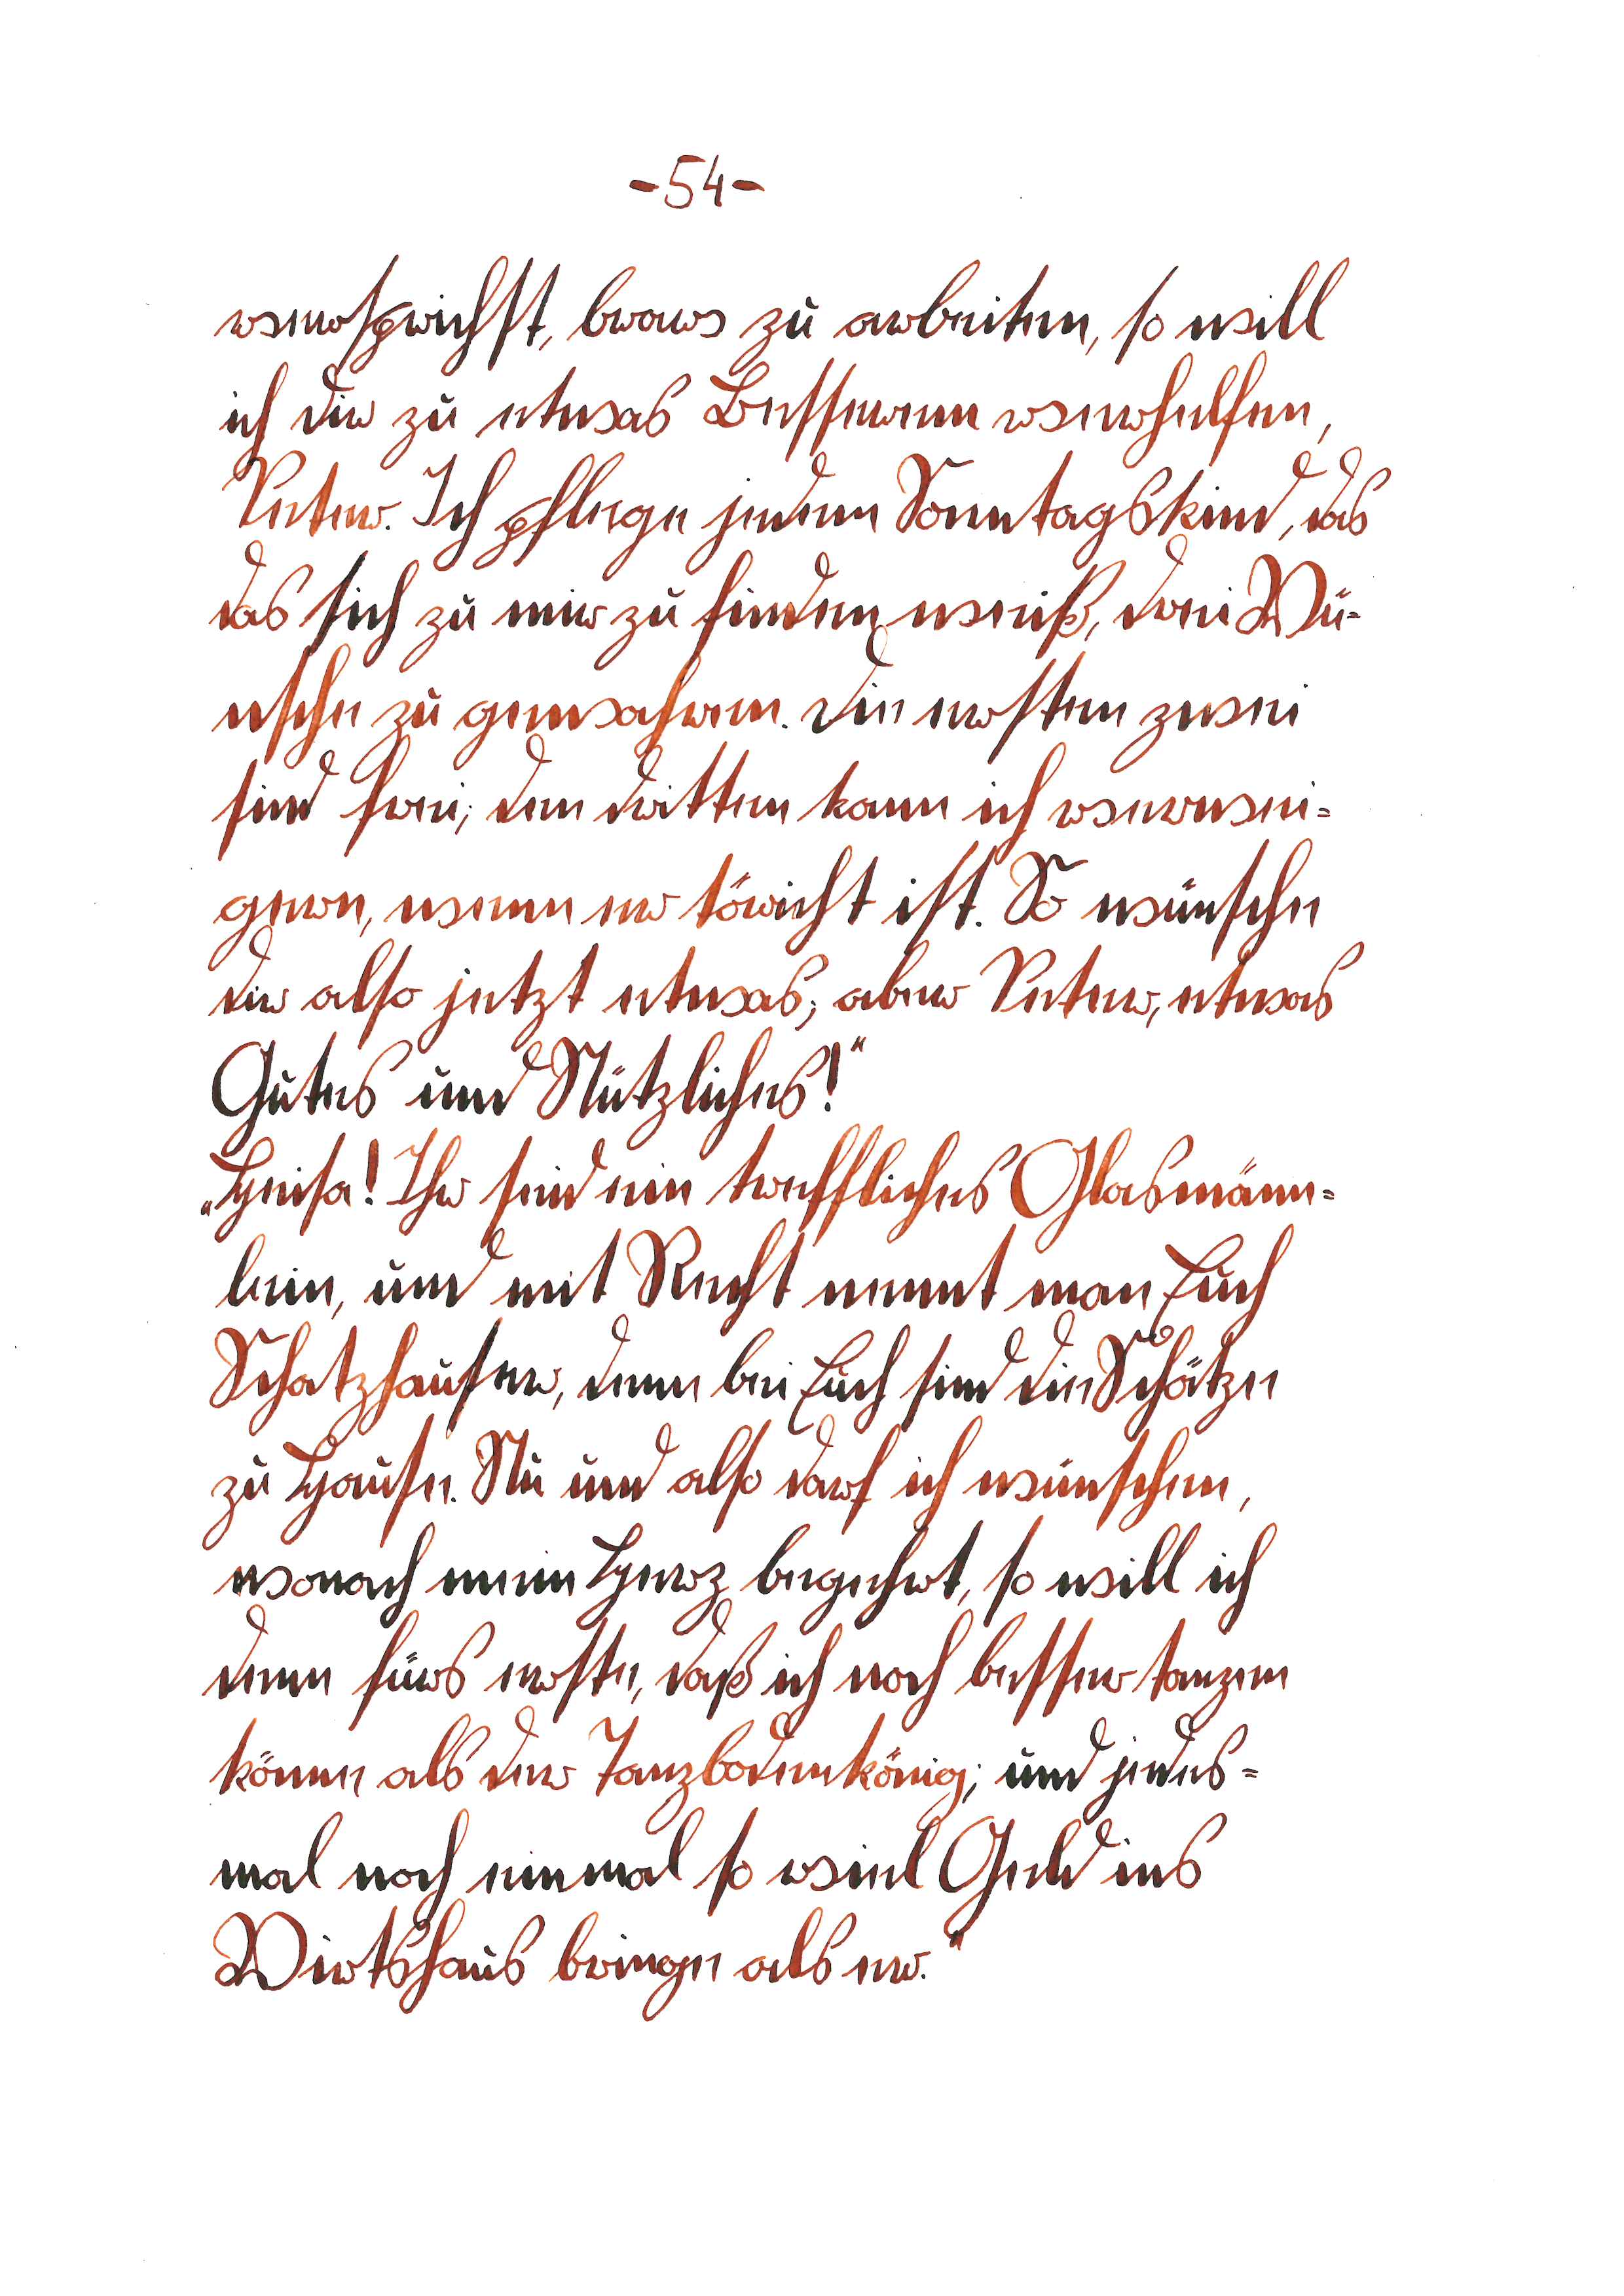 -54-
versprichst, brav zu arbeiten, so will
ich dir zu etwas Besserem verhelfen,
Peter. Ich pflege jedem Sonntagskind, das
das sich zu mir zu finden weiß, drei Wü-
nsche zu gewahren. Die ersten zwei
sind frei; den dritten kann ich verwei-
gern, wenn er töricht ist. So wünsche
dir also jetzt etwas; aber Peter, etwas
Gutes und Nützliches!"
„Heisa! Ihr seid ein treffliches Glasmänn-
lein, und mit Recht nennt man Euch
Schatzhauser, denn bei Euch sind die Schätze
zu Hause. Nu und also darf ich wünschen,
wonach mein Herz begehrt, so will ich
denn fürs erste, daß ich noch besser tanzen
könne als der Tanzbodenkönig; und jedes-
mal noch einmal so viel Geld ins
Wirtshaus bringe als er."